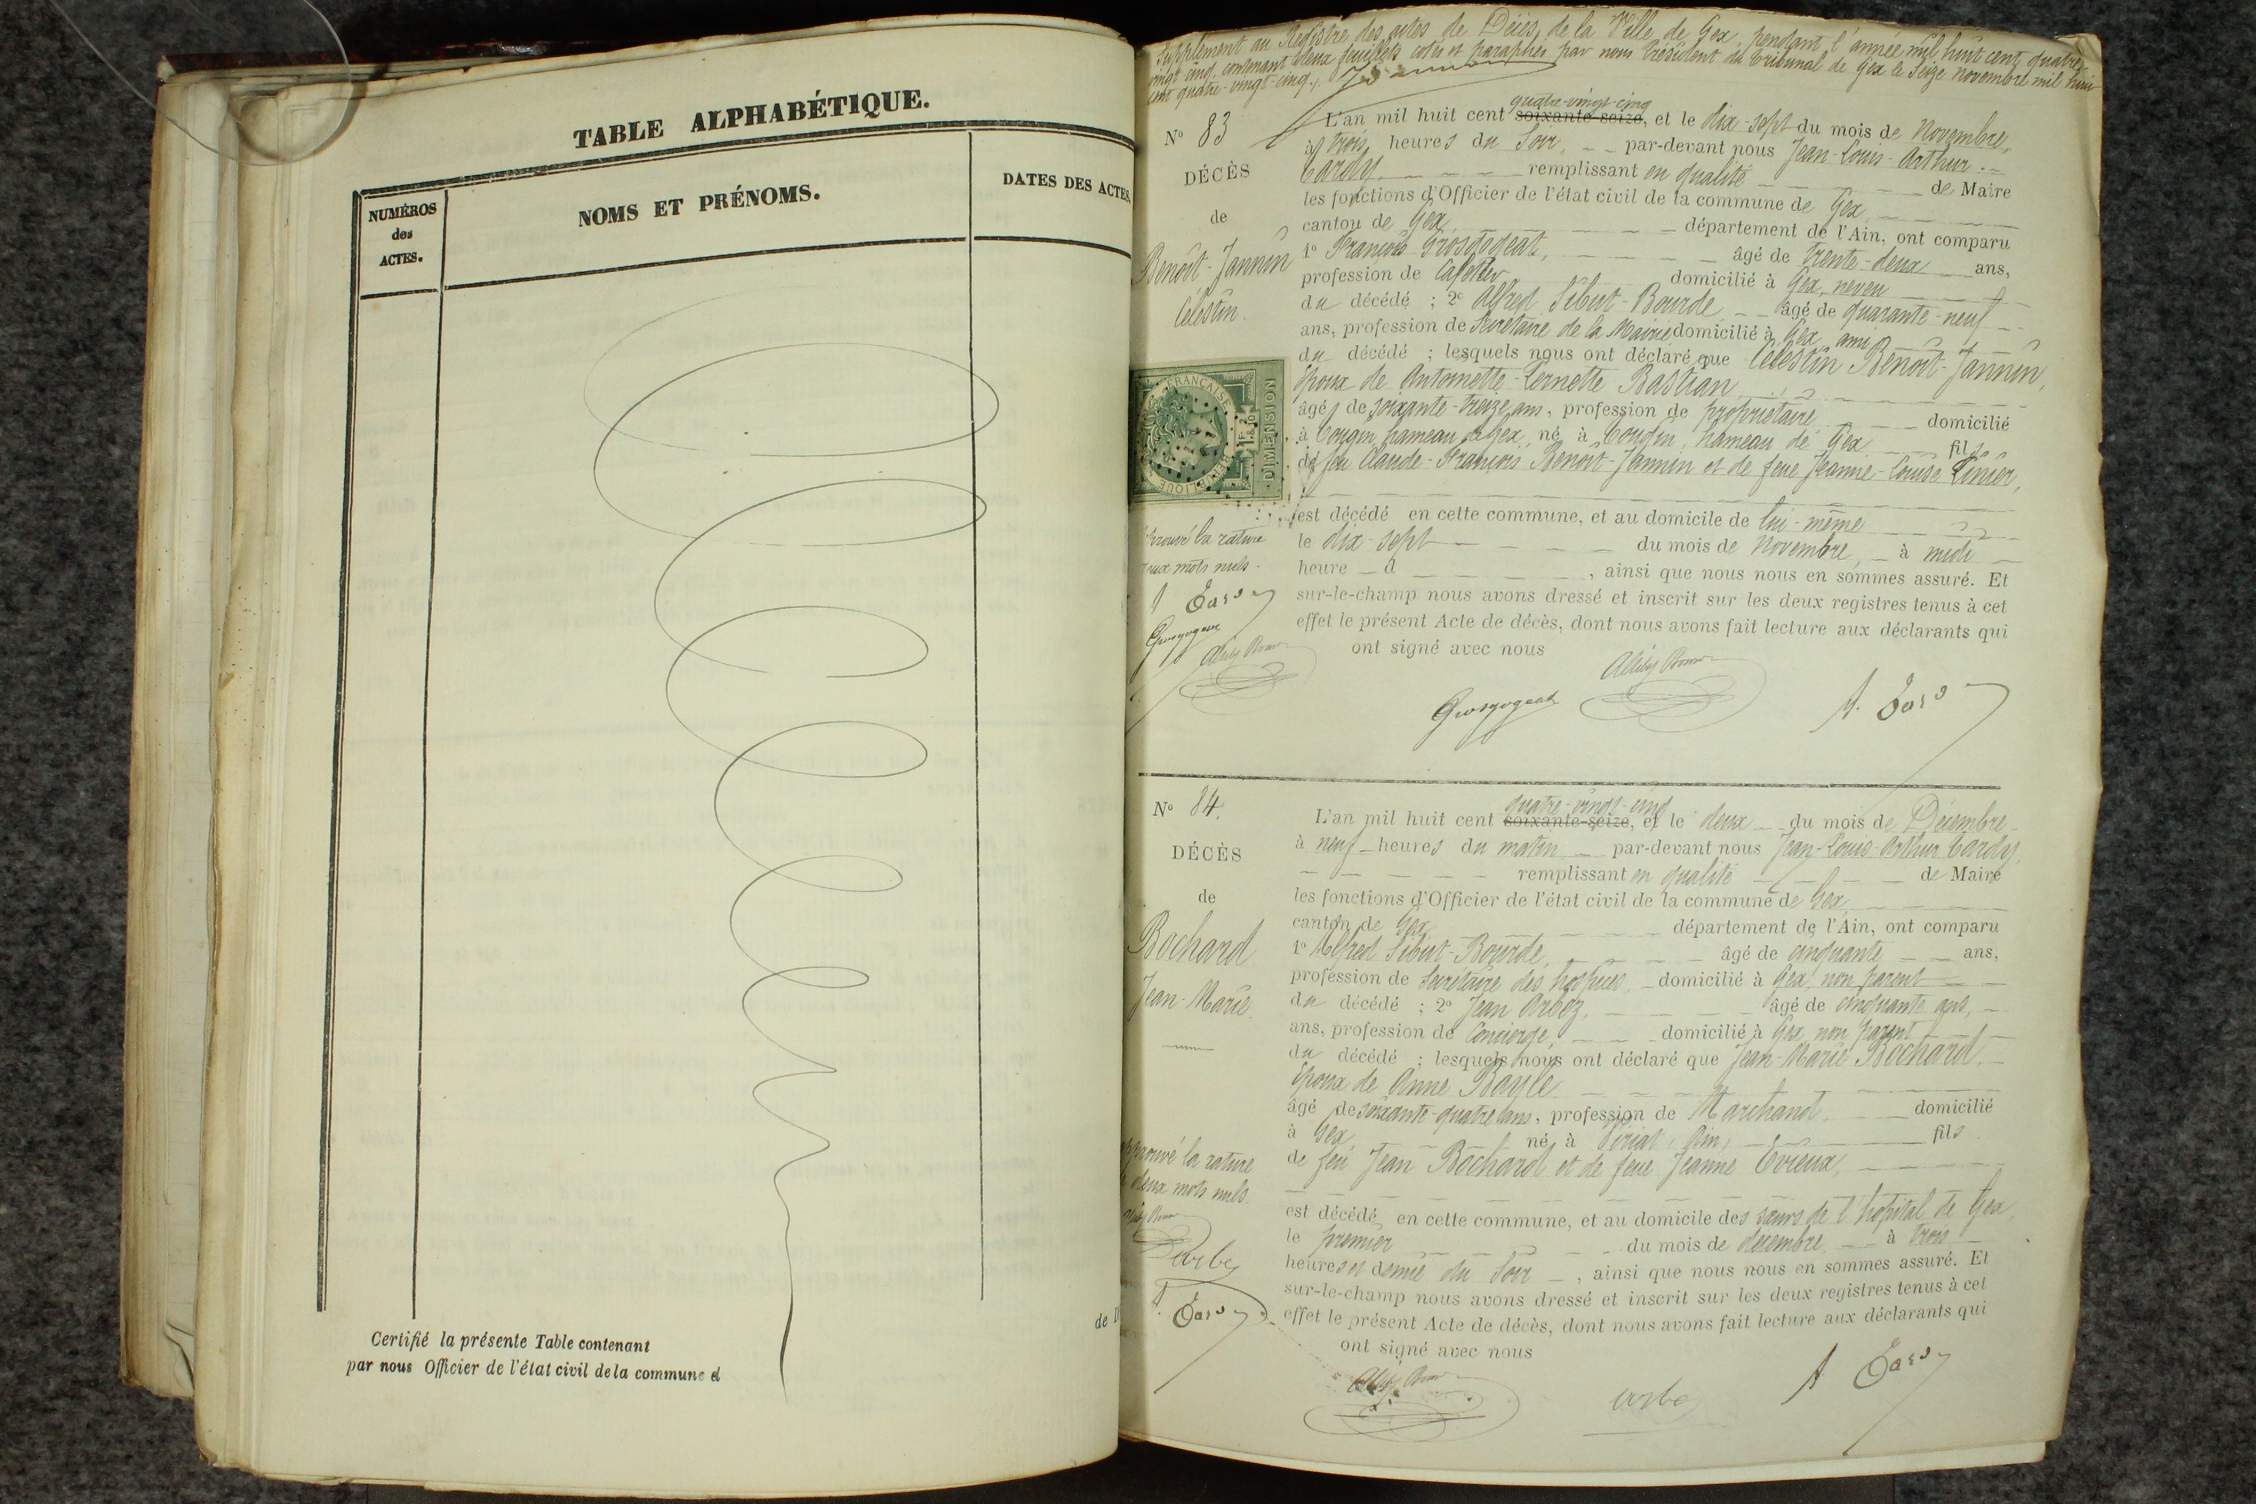 TABLE ALPHABÉTIQUE.
NUMÉROS
des
ACTES.
NOMS ET PRÉNOMS.
DATES DES ACTES.
Certifié la présente Table contenant
par nous Officier de l'état civil de la commune d
de D
Supplément au Registre des actes de Décès de la Ville de Gex, pendant l'année mil huit cent quatre
vingt cinq, contenant deux feuillets cotés et paraphés par nous Président du Tribunal de Gex le seize novembre mil huit
cent quatre-vingt-cinq.
N° 83
DÉCÈS
de
Benoît-Jannin
Célestin.
RÉPUBLIQUE FRANÇAISE
DIMENSION
approuvé la rature
deux mots nuls.
quatre-vingt-cinq
L'an mil huit cent soixante-seize, et le dix-sept du mois de Novembre,
à trois heures du Soir, par-devant nous Jean-Louis-Arthur
remplissant en qualité de Maire
les fonctions d'Officier de l'état civil de la commune de Gex
canton de Gex département de l'Ain, ont comparu
1° François Grosgogeat, âgé de trente-deux ans,
profession de Cafetier domicilié à Gex, neveu
du décédé ; 2° Alfred Sibut-Bourde âgé de quarante-neuf
ans, profession de Secrétaire de la Mairie domicilié à Gex, ami
du décédé ; lesquels nous ont déclaré que Célestin Benoît-Jannin,
époux de Antoinette-Pernette Bastian
âgé de soixante-treize ans, profession de propriétaire domicilié
à Tougin hameau de Gex, né à Tougin, hameau de Gex fils
de feu Claude-François Benoît-Jannin et de feue Jeanne-Louise
est décédé en cette commune, et au domicile de lui-même
le dix-sept du mois de Novembre, à midi
heure d , ainsi que nous nous en sommes assuré. Et
sur-le-champ nous avons dressé et inscrit sur les deux registres tenus à cet
effet le présent Acte de décès, dont nous avons fait lecture aux déclarants qui
ont signé avec nous
Grosgogeat
N° 84.
DÉCÈS
de
Bochard
Jean-Marie.
approuvé la rature
de deux mots nuls.
quatre-vingt-cinq
L'an mil huit cent soixante-seize, et le deux du mois de Décembre
à neuf heures du matin par-devant nous Jean-Louis-Arthur
remplissant en qualité de Maire
les fonctions d'Officier de l'état civil de la commune de Gex
canton de Gex département de l'Ain, ont comparu
1° Alfred Sibut-Bourde, âgé de cinquante ans,
profession de Secrétaire des hospices domicilié à Gex, non parent
du décédé ; 2° Jean Arbez. âgé de cinquante ans,
ans, profession de Concierge, domicilié à Gex, non parent
du décédé ; lesquels nous ont déclaré que Jean-Marie Bochard.
époux de Anne Bayle
âgé de soixante-quatre ans, profession de Marchand domicilié
à Gex né à Viriat, Ain, fils
de feu Jean Bochard et de feue Jeanne Evieux
est décédé en cette commune, et au domicile des sœurs de l'hôpital de Gex,
le premier du mois de décembre à trois
heures et demie du Soir , ainsi que nous nous en sommes assuré. Et
sur-le-champ nous avons dressé et inscrit sur les deux registres tenus à cet
effet le présent Acte de décès, dont nous avons fait lecture aux déclarants qui
ont signé avec nous